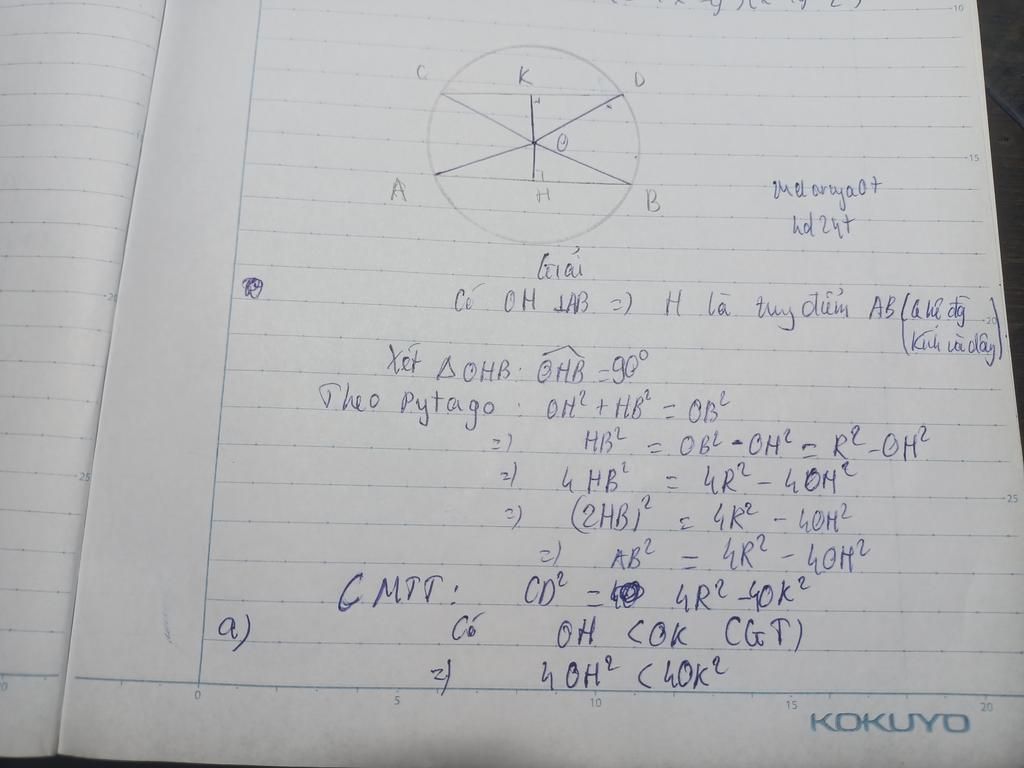 10
C K D
O
15
A H B
hd 24t
Giải
20
Có OH ⊥AB => H là trung điểm AB (q hệ đg
kính và dây)
Xét △OHB: OHB = 90°
Theo Pytago: OH² + HB² = OB²
=) HB² = OB² - OH² = R² - OH²
=) 4HB² = 4R² - 4OH²
25
25
=) (2HB)² = 4R² - 4OH²
=) AB² = 4R² - 4OH²
CMTT: CD² = 4R² - 4OK²
a) Có OH < OK (GT)
=) 4OH² < 4OK²
0 5 10 15 20
KOKUYO